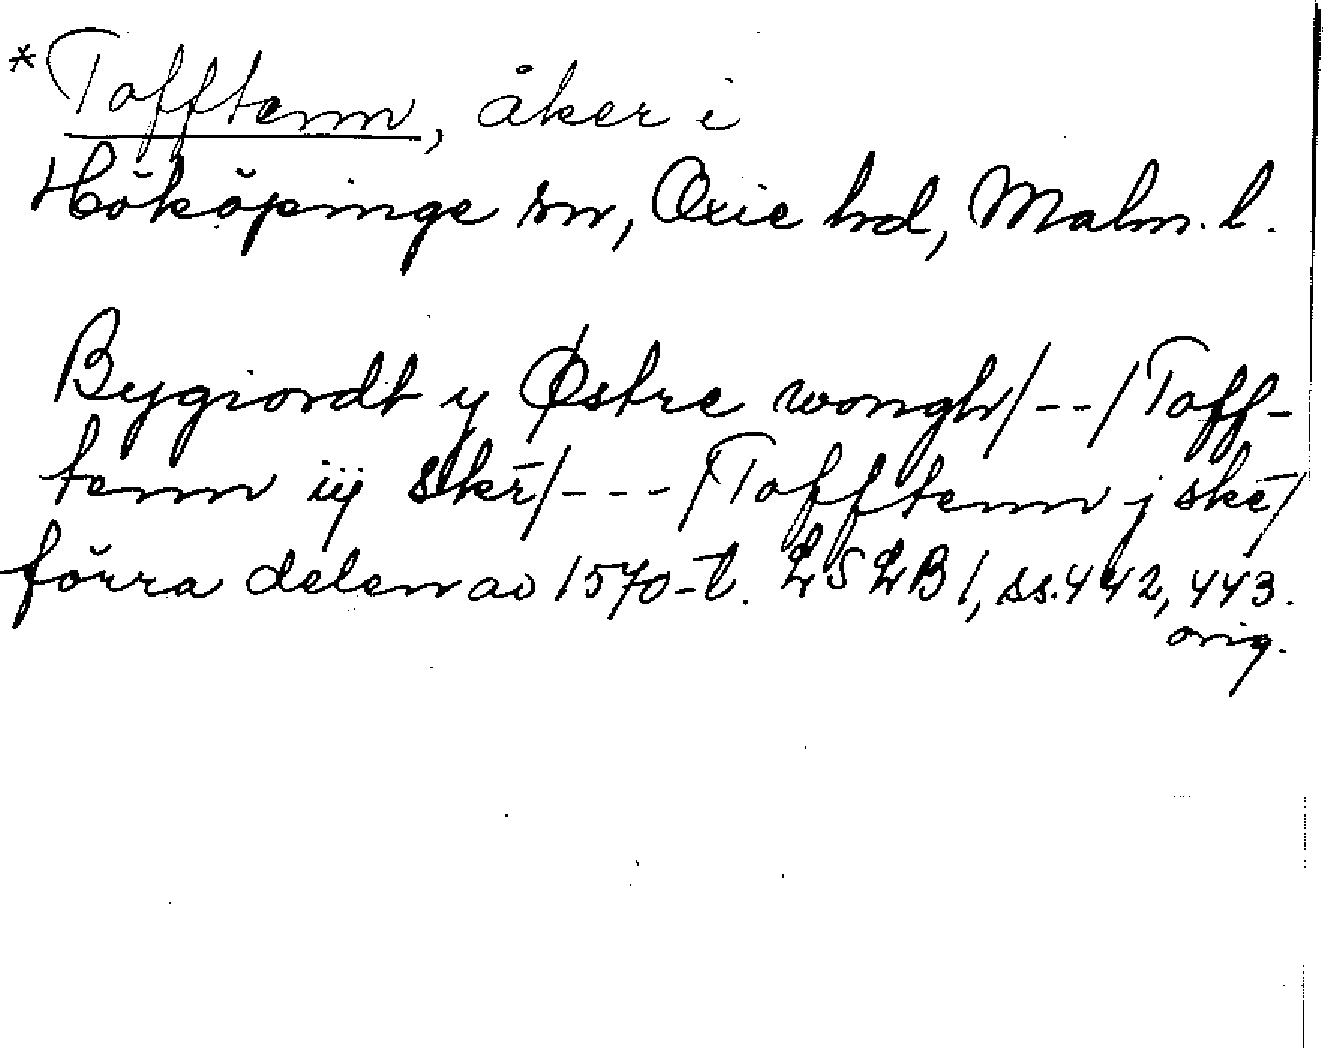 *Tofftenn, åker i
Hököpinge sn, Oxie hd, Malm. l.
Bygiordt y Østre wongh/--/Toff-
tenn iij skr̄/---/Tofftenn j skr̄/
förra delen av 1570-t. LSLB 1, ss. 442, 443.
orig.